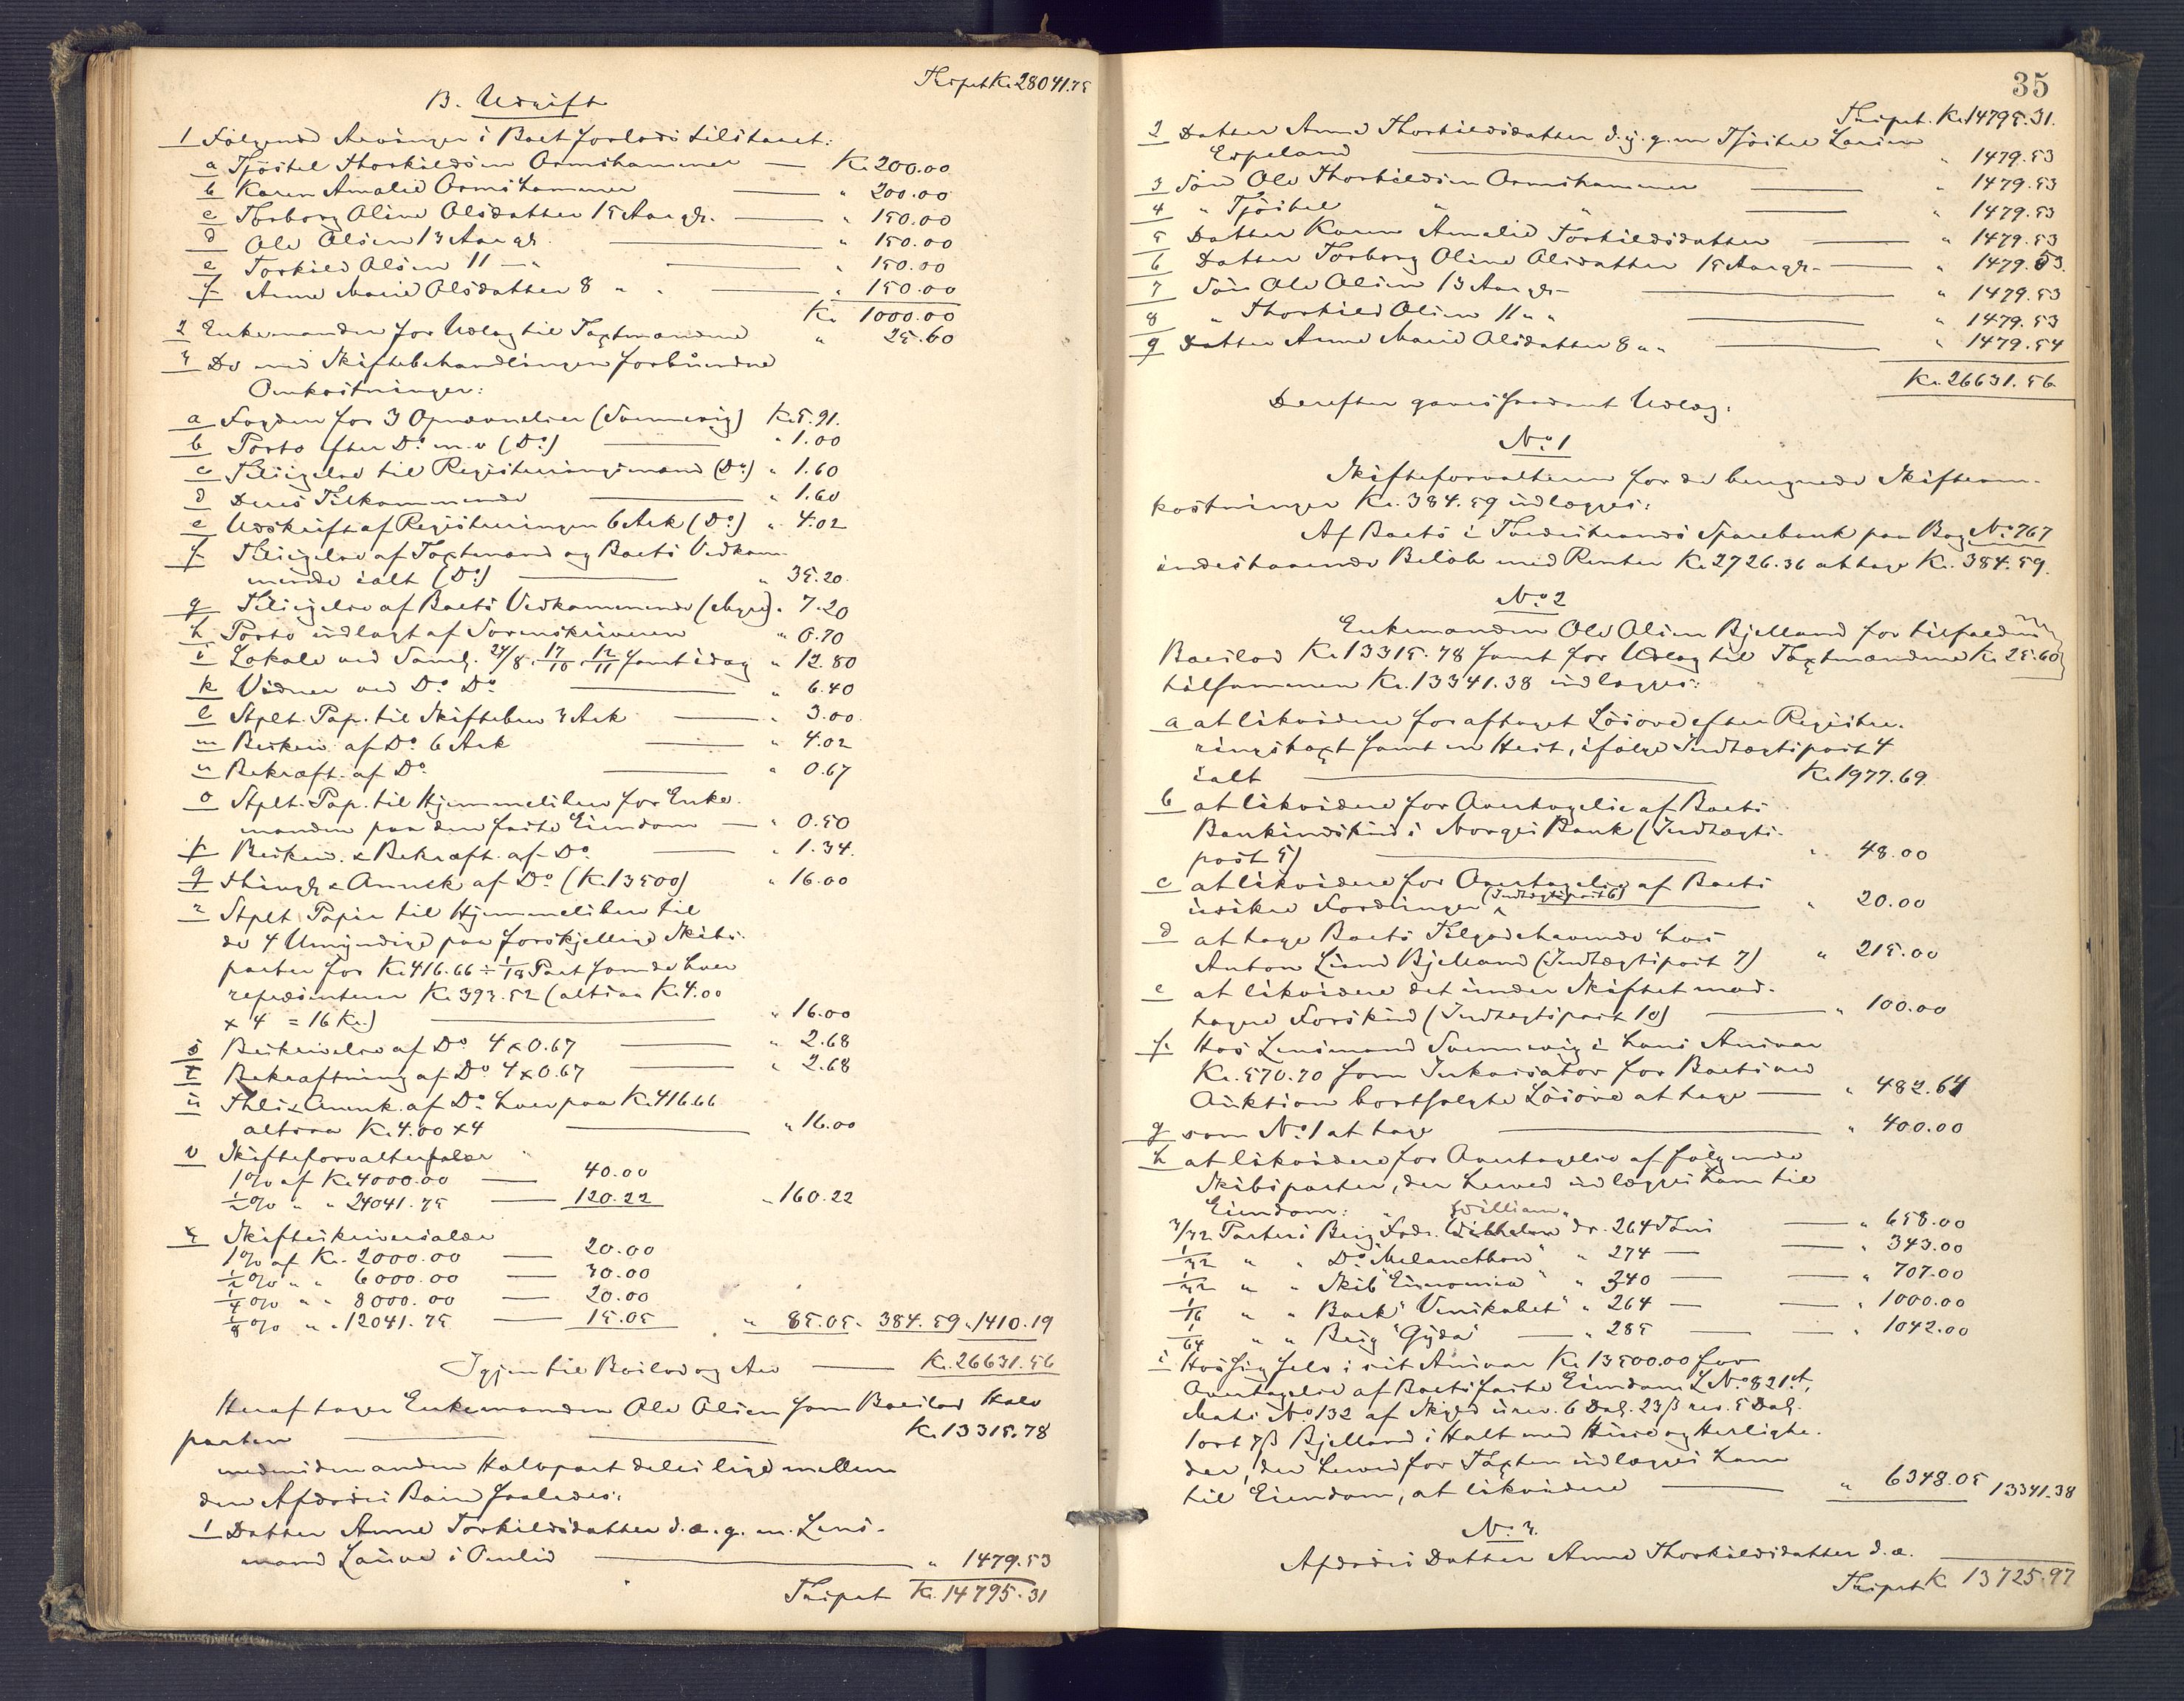 Transpt. Kr. 28041.75
B. Udgift
1 Følgende Arvinger i Boet forlods tilstaaet:
a Tjøstel Thorkildsen Ormshammer — Kr. 200.00
b Karen Amalie Ormshammer — " 200.00
c Thorborg Oline Olsdatter 15 Aar gl. — " 150.00
d Ole Olsen 13 Aar gl. — " 150.00
e Torkild Olsen 11 — " — " 150.00
f Anne Marie Olsdatter 8 " " — " 150.00
Kr. 1000.00
2 Enkemanden for Udlæg til Taxtmændene " 25.60
3 De med Skiftebehandlingen forbundne
Omkostninger:
a Fogden for 3 Opnævnelser (Svennevig) Kr. 5.91.
b Porto efter Do. m.v. (Do.) — " 1.00
c Tilsigelse til Registreringsmænd (Do.) " 1.60
d Deres Tilkommende — " 1.60
e Udskrift af Registreringen 6 Ark (Do.) " 4.02
f Tilsigelse af Taxtmænd og Boets Vedkom-
mende ialt (Do.) — " 35.20
g Tilsigelse af Boets Vedkommende " 7.20
h Porto udlagt af Sorenskriveren " 0.70
i Lokale ved Saml. 24/8, 17/10, 12/11 samt idag " 12.80
k Vidner ved Do. Do. — " 6.40
l Stplt. Pap. til Skiftebrev 3 Ark — " 3.00
m Beskriv. af Do. 6 Ark — " 4.02
n Bekræft. af Do. — " 0.67
o Stplt. Pap. til Hjemmelsbrev for Enke-
manden paa den faste Eiendom — " 0.50
p Beskriv. & Bekræft. af Do. — " 1.34.
q Thingl. & Anmrk. af Do. (Kr. 13500) " 16.00
r Stplt. Papir til Hjemmelsbrev til
de 4 Umyndige paa forskjellige Skibs-
parter for Kr. 416.66 ÷ 1/18 Part som de hver
repræsenterer Kr. 393.52 (altsaa Kr. 4.00
x 4 = 16 Kr.) — " 16.00
s Beskrivelse af Do. 4 x 0.67 — " 2.68
t Bekræftning af Do. 4 x 0.67 — " 2.68
u Thl. & Anmk. af Do. hver paa Kr. 416.66
altsaa Kr. 4.00 x 4 — " 16.00
v Skifteforvaltersalær
1% af Kr. 4000.00 — 40.00
1/2% " " 24041.75 — 120.22 " 160.22
x Skifteskriversalær
1% af Kr. 2000.00 — 20.00
1/2% " " 6000.00 — 30.00
1/4% " " 8000.00 — 20.00
1/8% " " 12041.75 — 15.05 " 85.05 " 384.59 " 1410.19
Igjen til Boslod og Arv — Kr. 26631.56
Heraf tager Enkemanden Ole Olsen som Boeslod Halv
parten — Kr. 13315.78
medens den anden Halvpart deles lige mellem
den Afdødes Børn saaledes:
1 Datter Anne Torkildsdatter d.æ. g. m. Lens-
mand Lauve i Omlid — " 1479.53
Transpt. Kr. 14795.31
35
Transpt. Kr. 14795.31.
2 Datter Anne Thorkildsdatter d.y. g. m. Tjøstel Larsen
Espeland — " 1479.53
3 Søn Ole Thorkildsen Ormshammer — " 1479.53
4 " Tjøstel " " — " 1479.53
5 Datter Karen Amalie Torkildsdatter — " 1479.53
6 Datter Torborg Oline Olsdatter 15 Aar gl. — " 1479.53.
7 Søn Ole Olsen 13 Aar gl. — " 1479.53
8 " Thorkild Olsen 11 " " — " 1479.53
9 Datter Anne Marie Olsdatter 8 " " — " 1479.54
Kr. 26631.56
Derefter gaves saadant Udlæg:
No. 1
Skifteforvalteren for de beregnede Skifteom-
kostninger Kr. 384.59 udlægges:
Af Boets i Tvedestrands Sparebank paa Bog No. 767
indestaaende Beløb med Renter Kr. 2726.36 at tage Kr. 384.59.
No. 2
Enkemanden Ole Olsen Bjelland for tilfalden
Boeslod Kr. 13315.78 samt for Udlæg til Taxtmændene Kr. 25.60
tilsammen Kr. 13341.38 udlægges:
a at likvidere for aftaget Løsøre efter Registre-
ringstaxt samt en Hest, ifølge Indtægtspost 4
ialt — Kr. 1977.69
b at likvidere for Overtagelse af Boets
Bankindskud i Norges Bank (Indtægts-
post 5) — " 48.00
c at likvidere for Overtagelse af Boets
usikre Fordringer (Indtægtspost 6) — " 20.00
d at tage Boets Tilgodehavende hos
Anton Lund Bjelland (Indtægtspost 7) " 215.00
e at likvidere det under Skiftet mod-
tagne Forskud (Indtægtspost 10) — " 100.00
f Hos Lensmand Svennevig i hans Ansvar
Kr. 570.70 som Inkassator for Boets ved
Auktion bortsolgte Løsøre at tage — " 482.64
g som No. 1 at tage — " 400.00
h at likvidere for Overtagelse af følgende
Skibsparter, der herved udlægges ham til
Eiendom: "William"
3/32 Parter i Brig Fredr. Wilhelm dr. 264 Tons — " 658.00
1/32 " " Do. "Melanchton" " 274 — — " 343.00
1/32 " " Skib "Eunomia" " 340 — — " 707.00
1/16 " " Bark "Venskabet" " 264 — — " 1000.00
1/64 " " Brig "Gyda" — " 285 — — " 1042.00
i Hos sig selv i sit Ansvar Kr. 13500.00 for
Overtagelse af Boets faste Eiendom LNo. 821,
Matr. No. 132 af Skyld urev. 6 Dal. 23 β rev. 5 Dal.
1 ort 7 β Bjelland i Holt med Huse og Herlighe-
der, der herved for Taxten udlægges ham
til Eiendom, at likvidere — " 6348.05 13341.38
No. 3.
Afdødes Datter Anne Thorkildsdatter d.æ.
Transpt. Kr. 13725.97